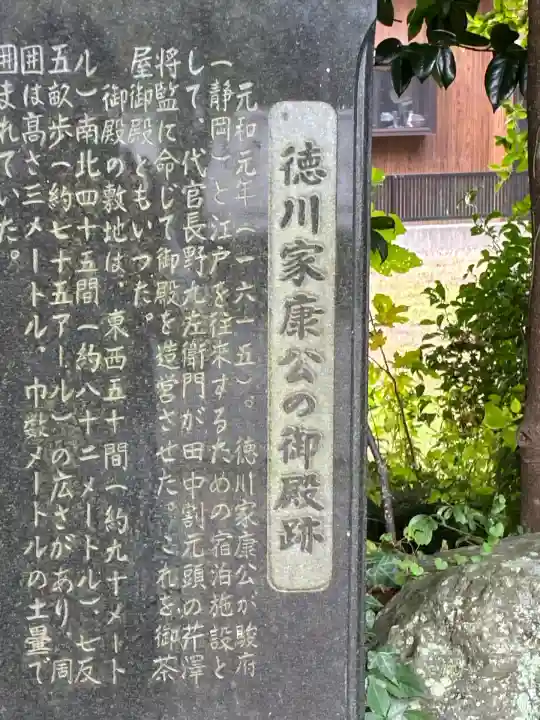 徳川家康公の御殿跡
元和元年(一六一五)。徳川家康公が駿府
(静岡)と江戸を往来するための宿泊施設と
して、代官長野九左衛門が田中割元頭の芹澤
将監に命じて御殿を造営させた。これを御茶
屋御殿ともいった。
御殿の敷地は、東西五十間(約九十メート
ル)南北四十五間(約八十二メートル)、七反
五畝歩(約七十五アール)の広さがあり、周
囲は高さ三メートル、巾数メートルの土塁で
囲まれていた。